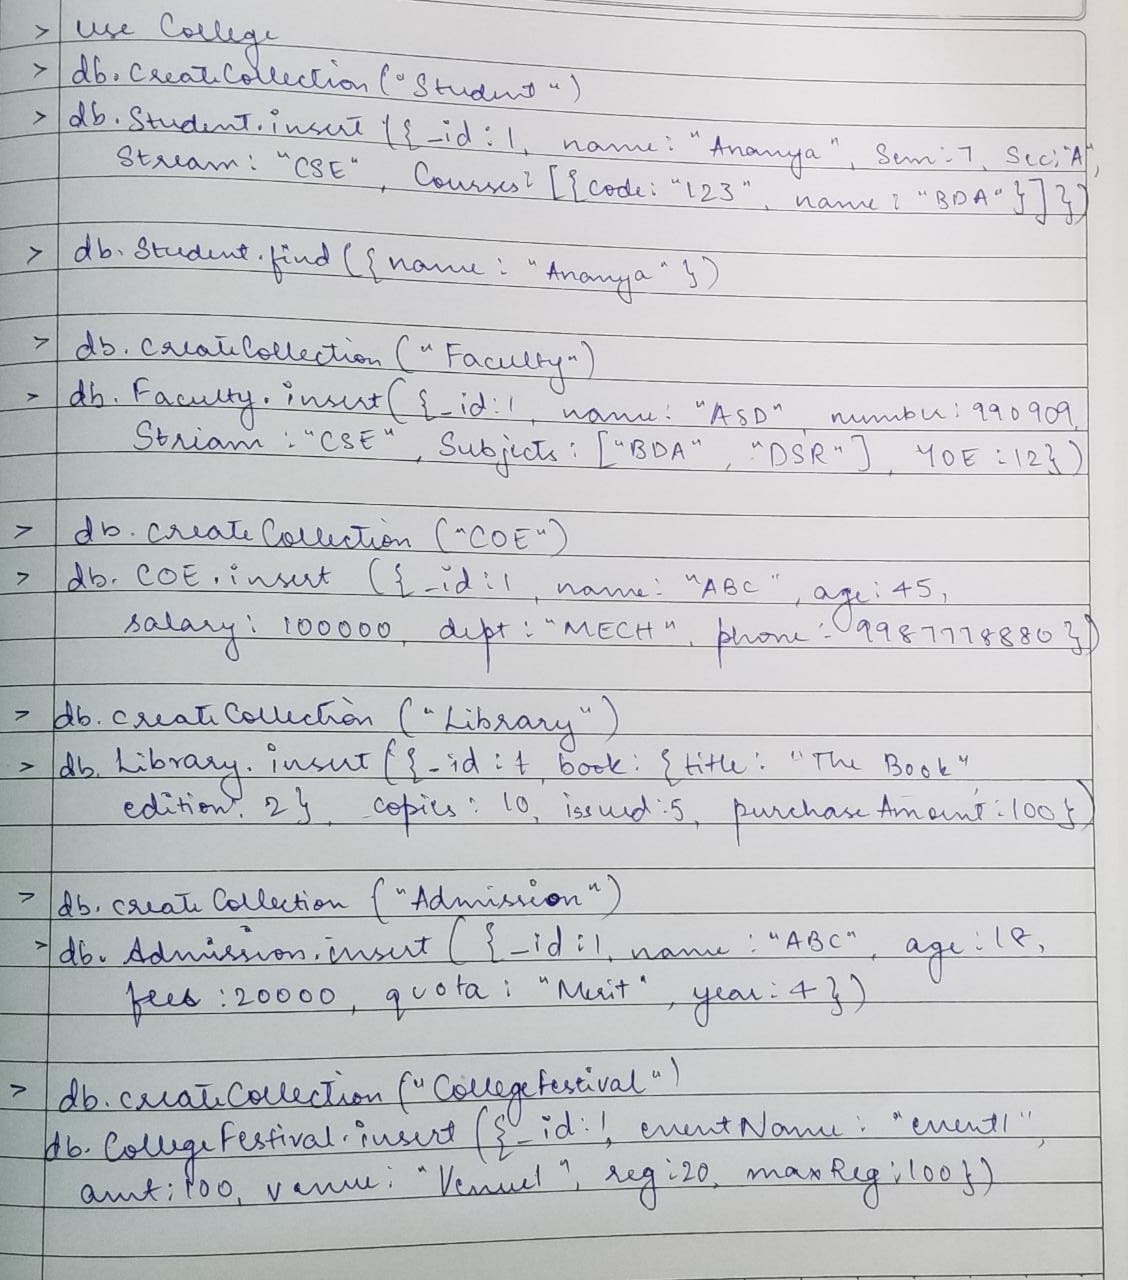 > use College
> db.createCollection("Student")
> db.Student.insert({_id:1, name: "Ananya", Sem:7, Sec:"A",
Stream: "CSE", Courses: [{code: "123", name: "BDA"}]})
> db.Student.find({name: "Ananya"})
> db.createCollection("Faculty")
> db.Faculty.insert({_id:1, name: "ASD", number:990909,
Stream:"CSE", Subjects: ["BDA", "DSR"], YOE:12})
> db.createCollection("COE")
> db.COE.insert({_id:1, name: "ABC", age:45,
salary: 100000, dept: "MECH", phone: 9987778880})
> db.createCollection("Library")
> db.Library.insert({_id: book: {title: "The Book"
edition: 2}, copies: 10, issued:5, purchaseAmount:100})
> db.createCollection("Admission")
> db.Admission.insert({_id:1, name:"ABC", age:18,
fees:20000, quota: "Merit", year:4})
> db.createCollection("CollegeFestival")
db.CollegeFestival.insert({_id:1, eventName: "event1",
amt:100, venue: "Venue1", reg:20, maxReg:100})